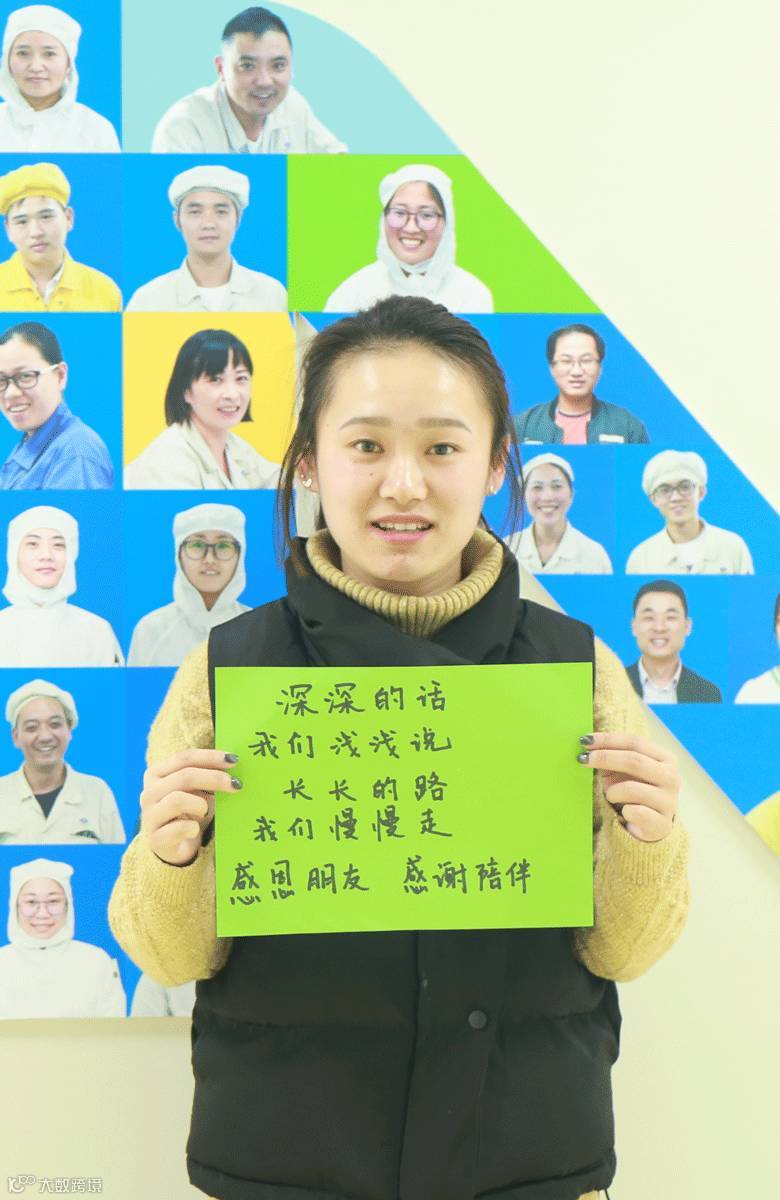 深深的话
我们浅浅说
长长的路
我们慢慢走
感恩朋友 感谢陪伴
大数跨境